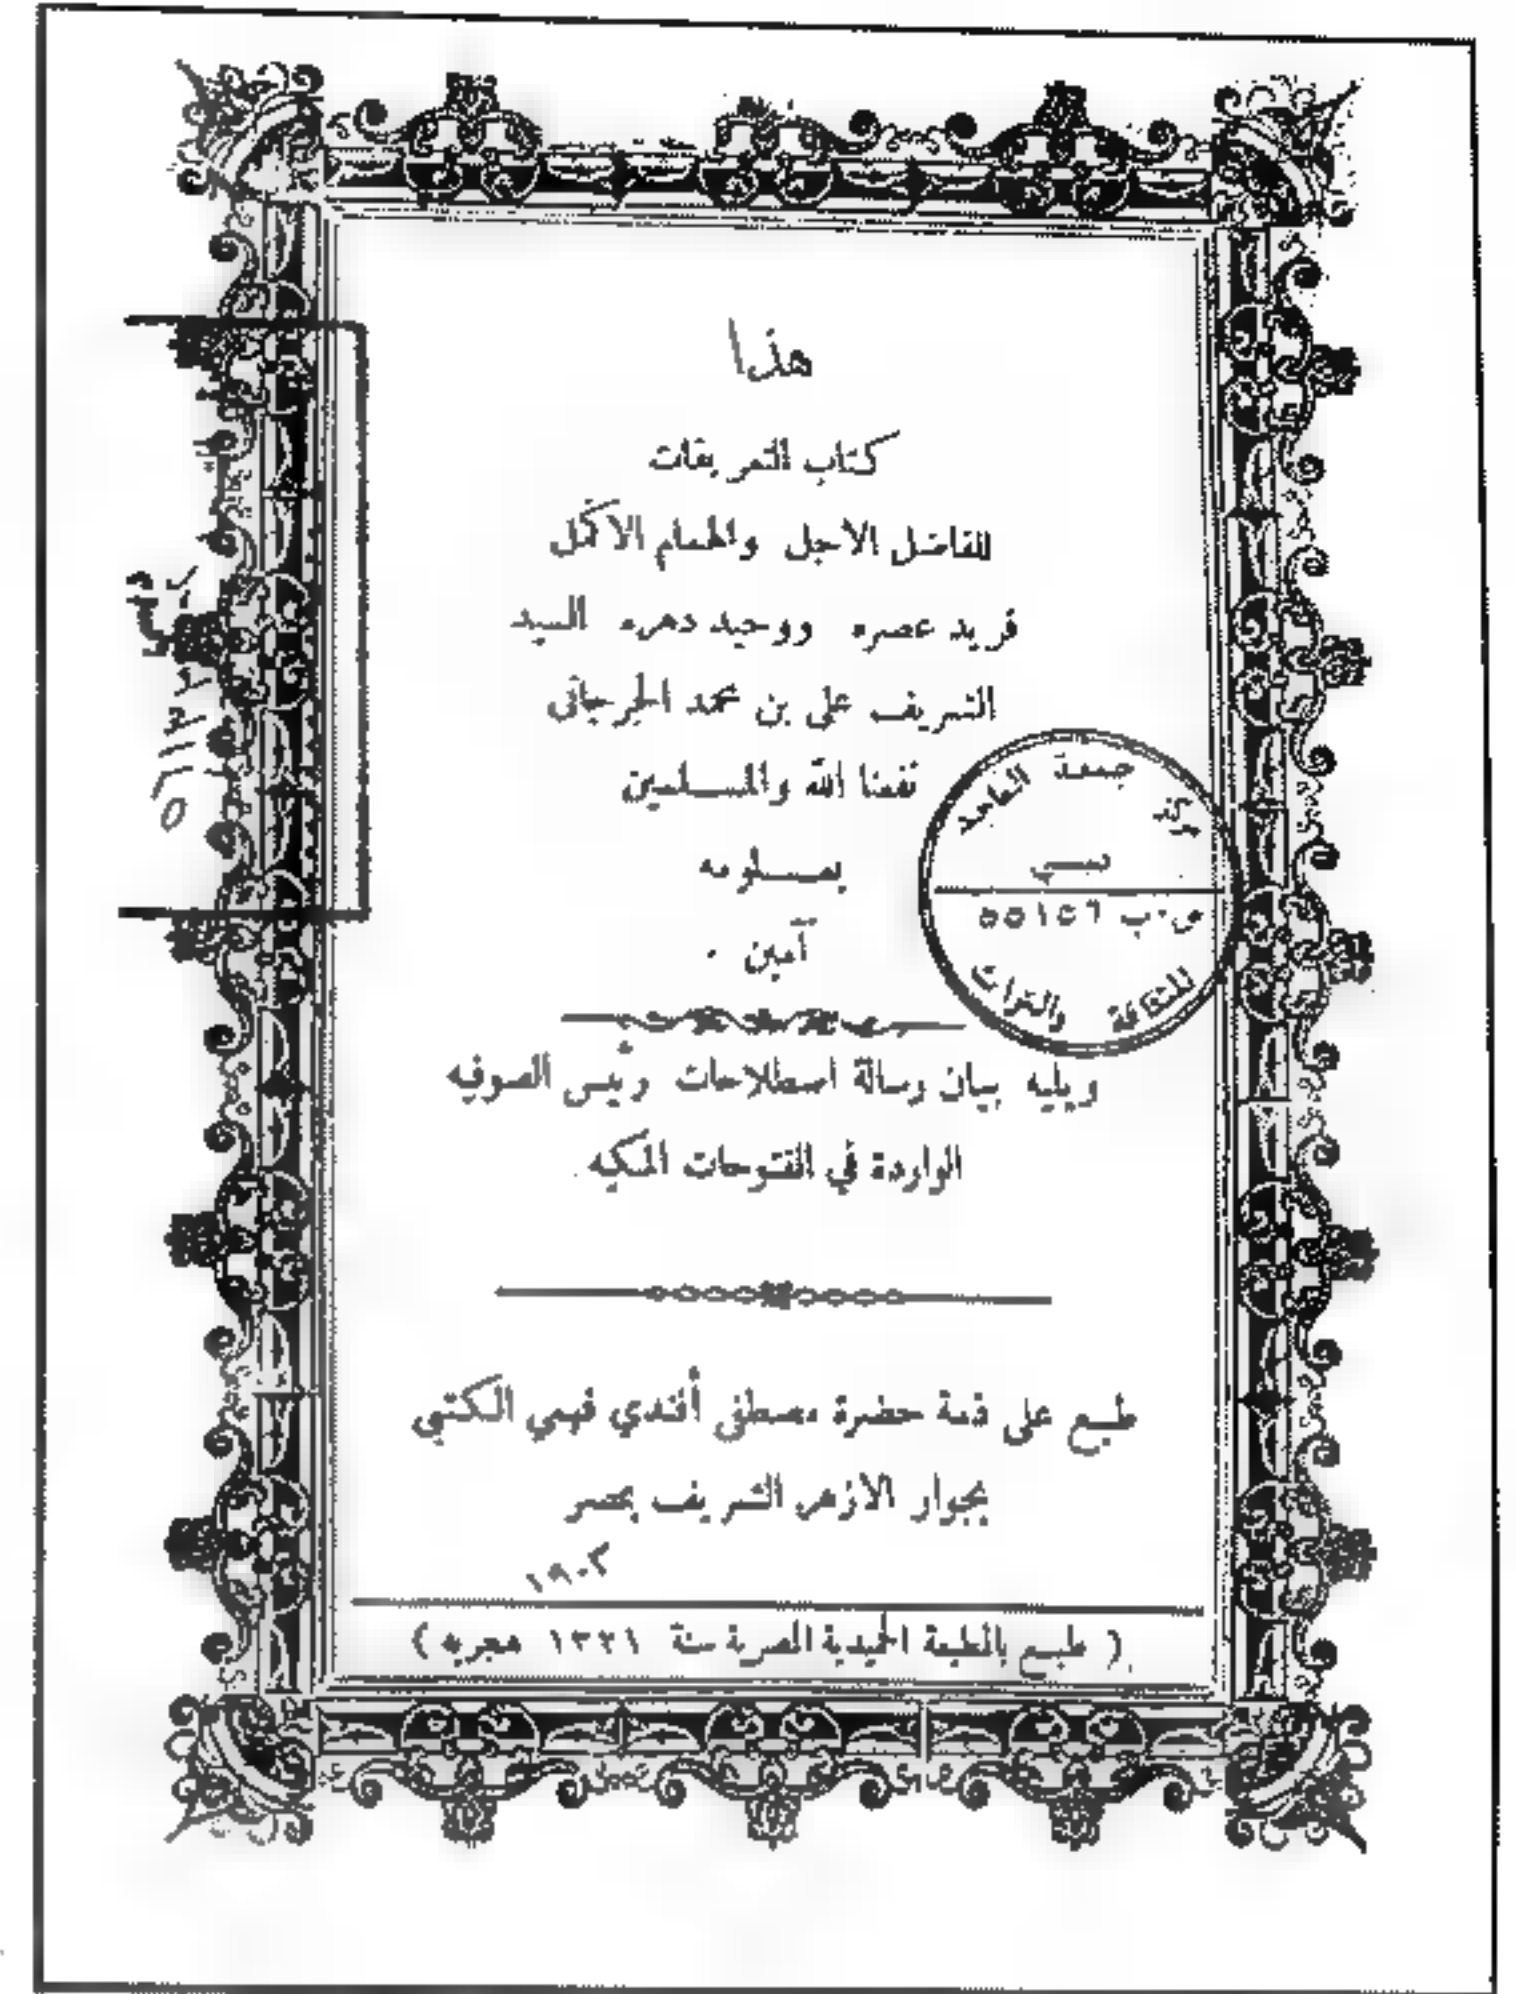 هذا
كتاب التعريفات
للفاضل الاجل والهمام الاكمل
فريد عصره ووحيد دهره السيد
الشريف على بن محمد الجرجانى
نفعنا الله والمسلمين
بعلومه
آمين
مركز جمعة الماجد
دبي
ص.ب ٥٥١٥٦
للثقافة والتراث
ويليه بيان رسالة اصطلاحات رئيس الصوفيه
الواردة في الفتوحات المكيه
طبع على ذمة حضرة مصطفى أفندي فهمي الكتبي
بجوار الازهر الشريف بمصر
( طبع بالمطبعة الحميدية المصرية سنة ١٣٢١ هجريه )